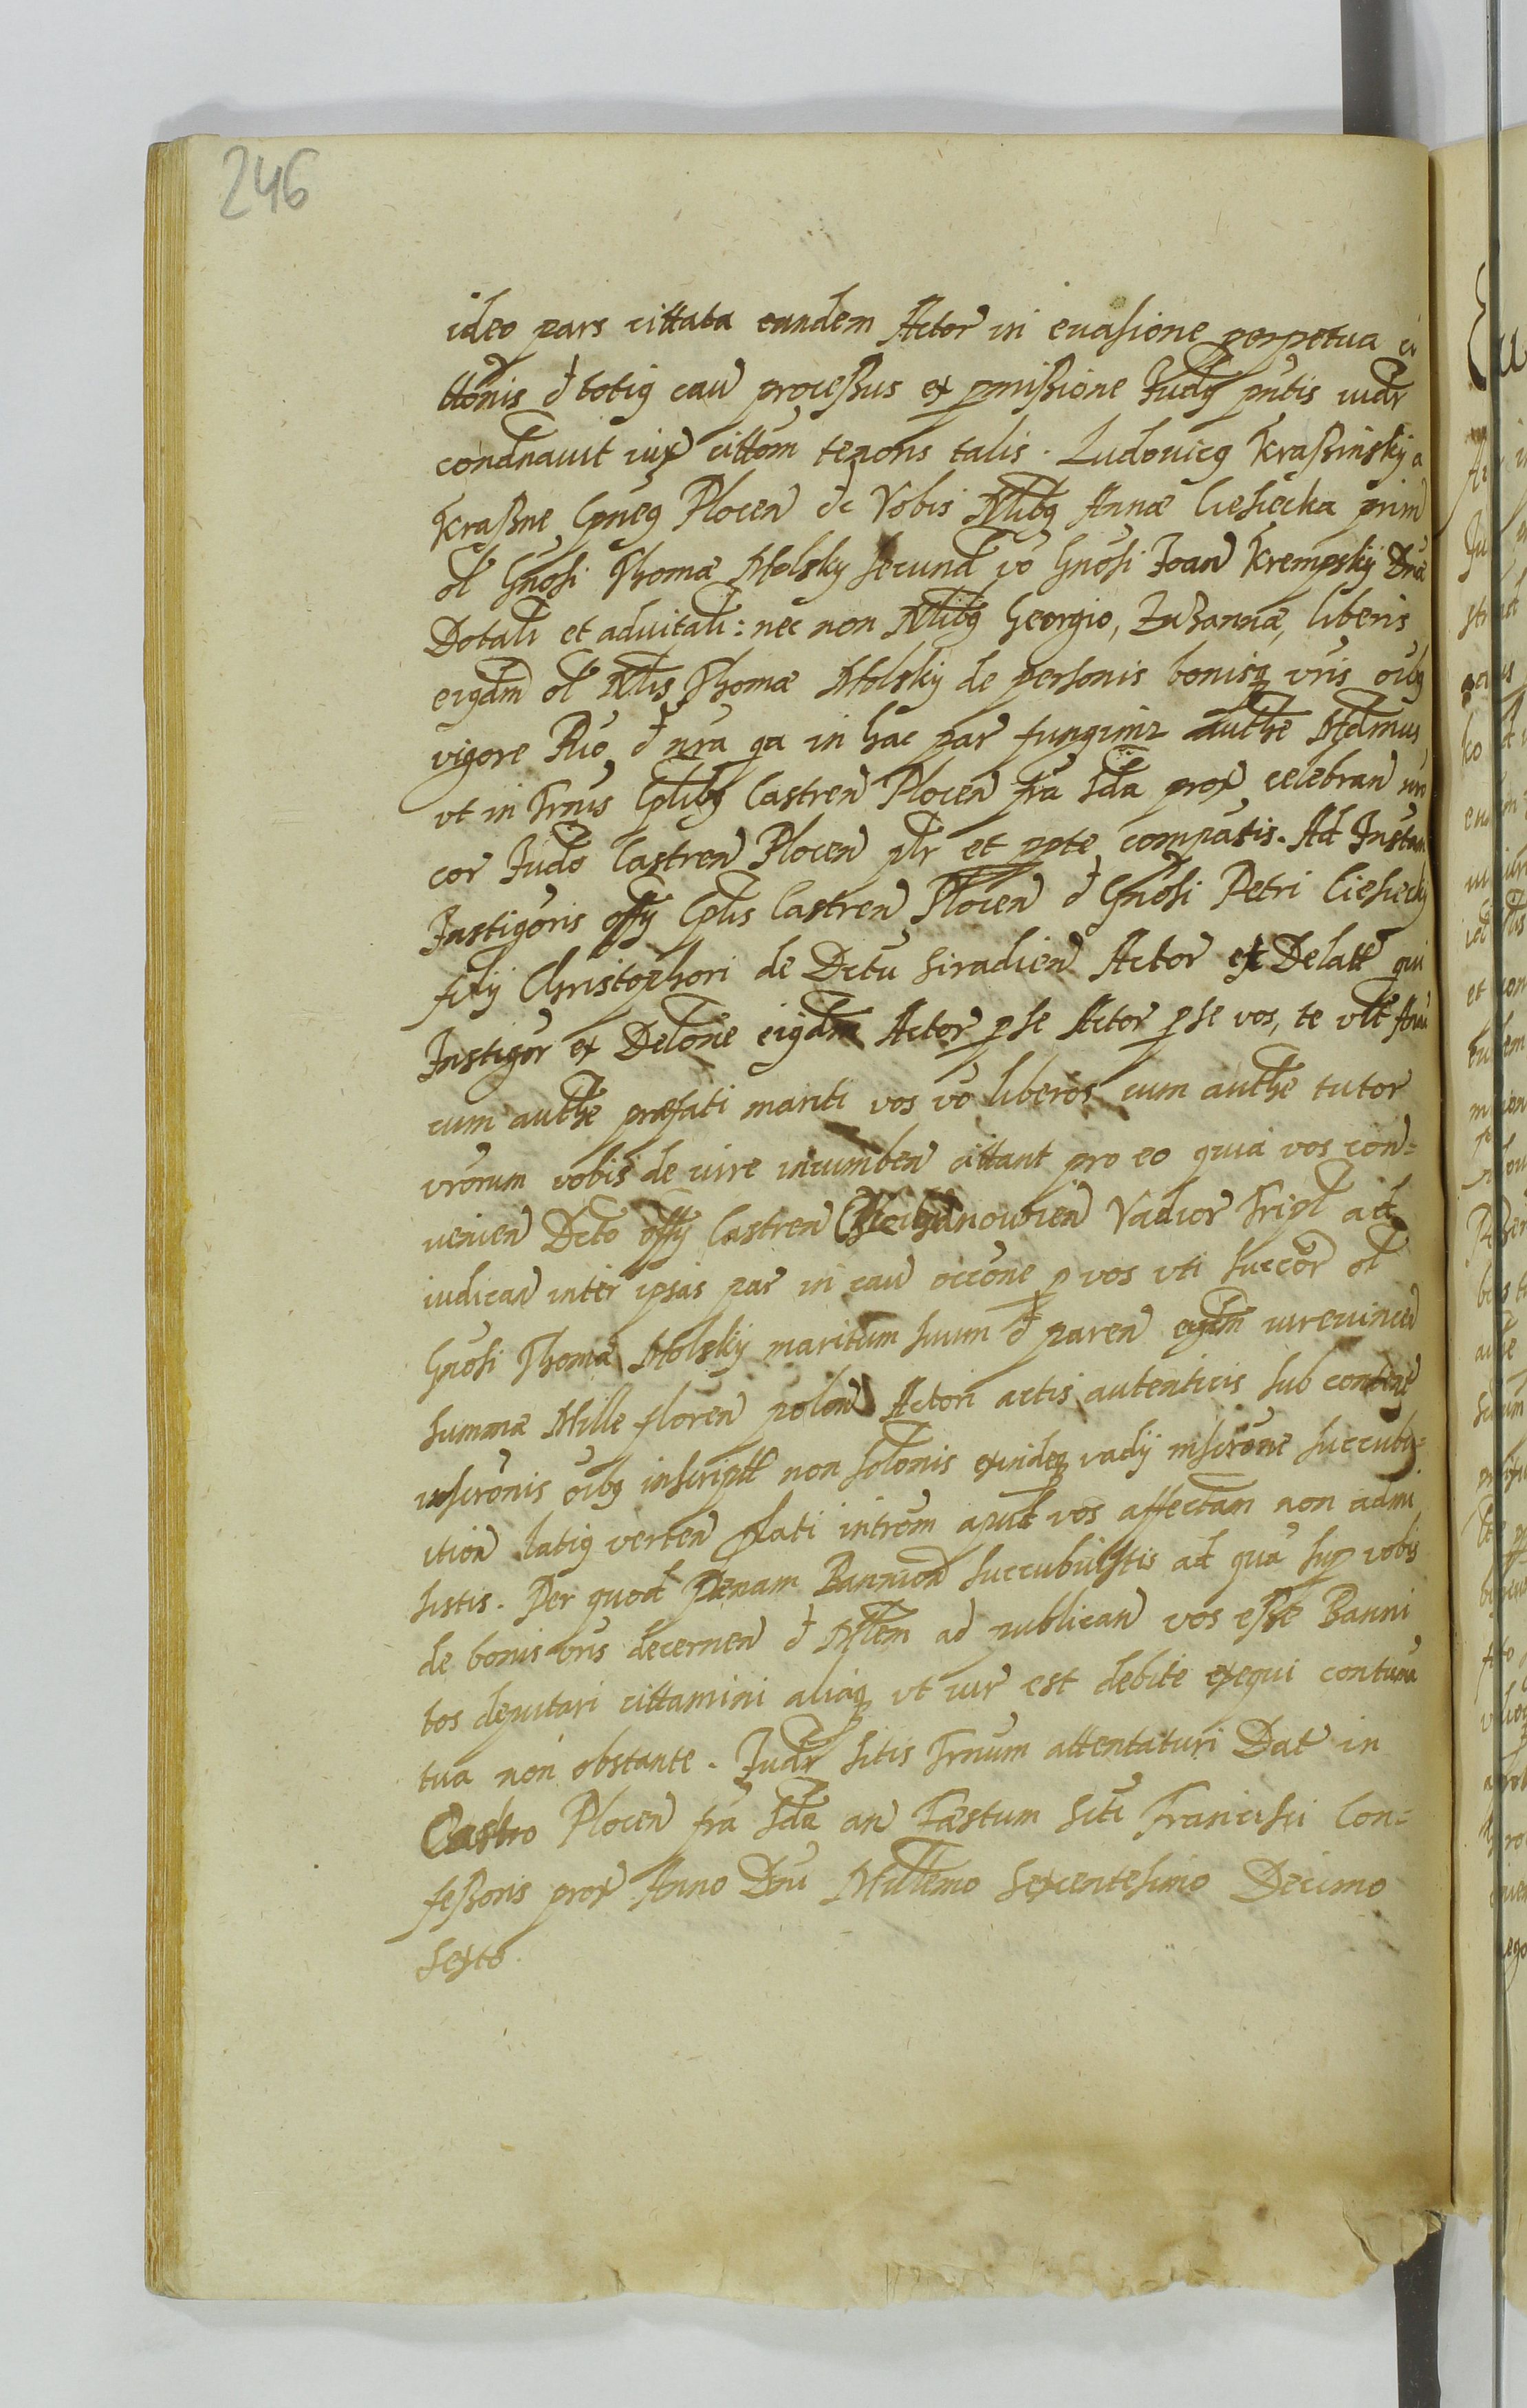 246
ideo pars cittata eundem Actor in euasione perpetua ci
ttonis et totig cau processus ex pmissione Judy pntis iudr
condnauit iux cittom tenoris talis. Ludouicg Krassinsky a
Krassne Cpneg Plocen etc Vobis Nlibg Annæ Ciesiecka prim
ol Gnosi Thomæ Molsky secund vo Gnosi Joan Krempskij Dnæ
Dotali et aduitali: nec non Nlibg Georgio, Zuzannæ, liberis
eigdm ol Nlis Thomæ Molskij de personis bonisq vris oibg
vigore Ruo et nra qa in hac par fungimr authe Mdmus
vt in Trnis Cplibg Castren Plocen fra 2da prox celebran
cor Judo Castren Plocen plr et ppte compatis. Ad Instan
Instigoris offy Cplis Castren Plocen et Gnosi Petri Ciesiecky
filij Christophori de Dctu Siradien Actor et Delatt qui
Instigor ex Delone eigdm Actor p se Actor p se vos, te vtt
cum authe præfati mariti vos vo liberos cum authe tutor
vrorum vobis de iure incumben cittant pro eo quia vos con=
uenien Dcto offy Castren Vadior Tripl ad
iudican inter ipsas par in cau occone p vos vti succor ol
Gnosi Thomæ Molskij maritum suum et paren eigdm iureuincen
summæ Mille floren polon Actori actis autenticis sub contine
inscronis oibg inscriptt non solonis exindeq vadij inscrone succubi=
ition latig verten plati introm apud vos affectan non admi
sistis. Per quod Pænam Bannion succubuistis ad qua sup vobis
de bonis vris decernen et Mltem ad publican vos esse Banni
tos deputari cittamini aliaq vt iur est debite exequi contuma
tua non obstante. Judr sitis Trnum attentaturi Dat in
Castro Plocen fra 2da an Fæstum Scti Francisci Con=
fessoris prox Anno Dni Millemo Sexcentesimo Decimo
Sexto.